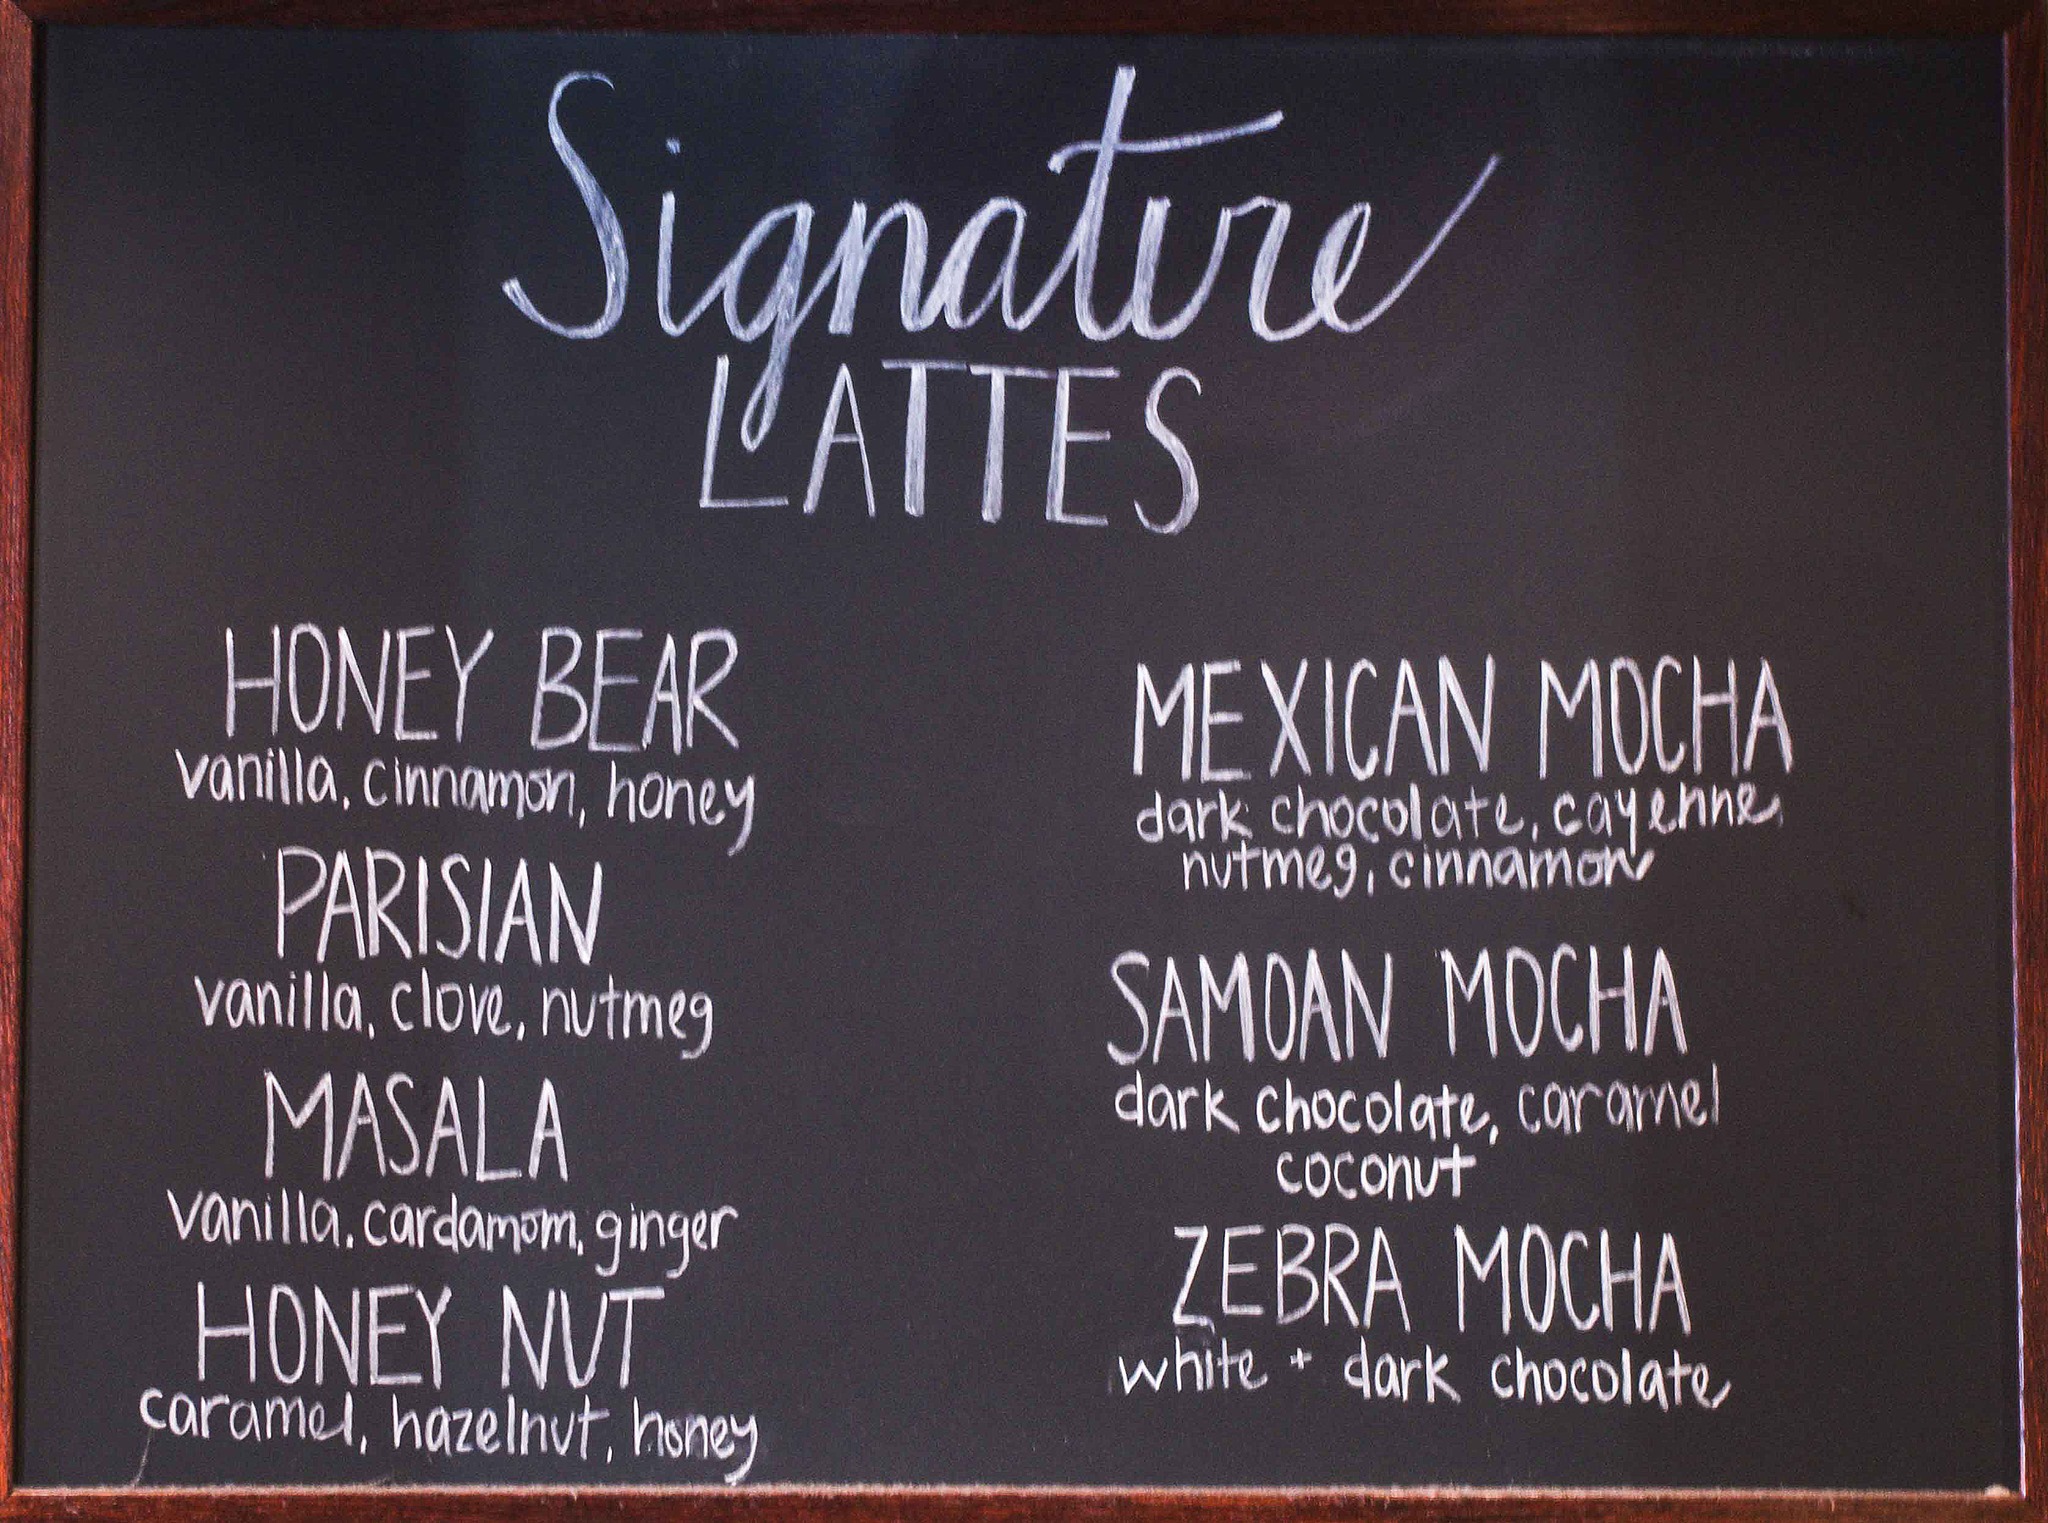 Signature
LATTES
HONEY BEAR
vanilla, cinnamon, honey
PARISIAN
vanilla, clove, nutmeg
MASALA
vanilla, cardamom, ginger
HONEY NUT
caramel, hazelnut, honey
MEXICAN MOCHA
dark chocolate, cayenne,
nutmeg, cinnamon
SAMOAN MOCHA
dark chocolate, caramel
coconut
ZEBRA MOCHA
white + dark chocolate